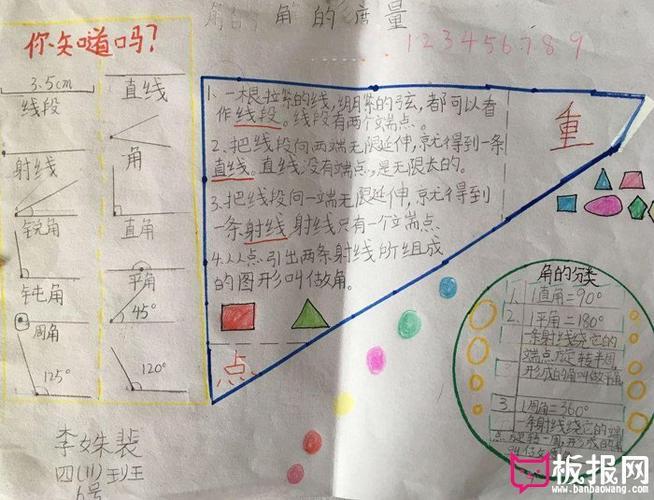 角的度量
1 2 3 4 5 6 7 8 9
你知道吗?
3.5cm
线段
直线
射线
角
锐角
直角
钝角
平角
45°
周角
125°
120°
李姝裴
四(11)班
6号
1、一根拉紧的线,绷紧的弦,都可以看
作线段。线段有两个端点。
2、把线段向两端无限延伸,就得到一条
直线。直线没有端点,是无限大的。
3、把线段向一端无限延伸,就得到
一条射线 射线只有一个端点
4.从一点引出两条射线所组成
的图形叫做角。
重
点
角的分类
1、1直角=90°
2、1平角=180°
一条射线绕它的
端点旋转半周,
形成的角叫做平角
3、1周角=360°
一条射线绕它的端
板报网
www.banbaowang.com